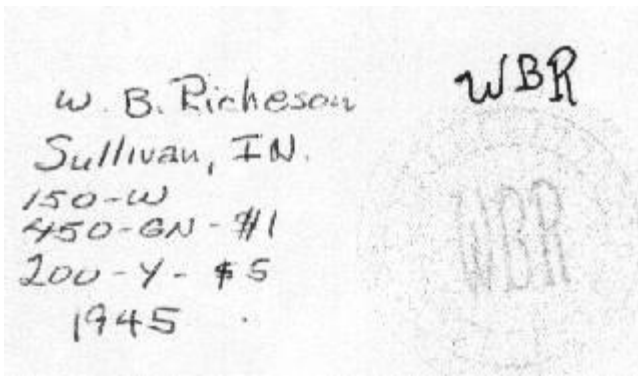 W. B. Richeson
WBR
Sullivan, IN.
150-W
450-GN-#1
200-Y-$5
1945
WBR